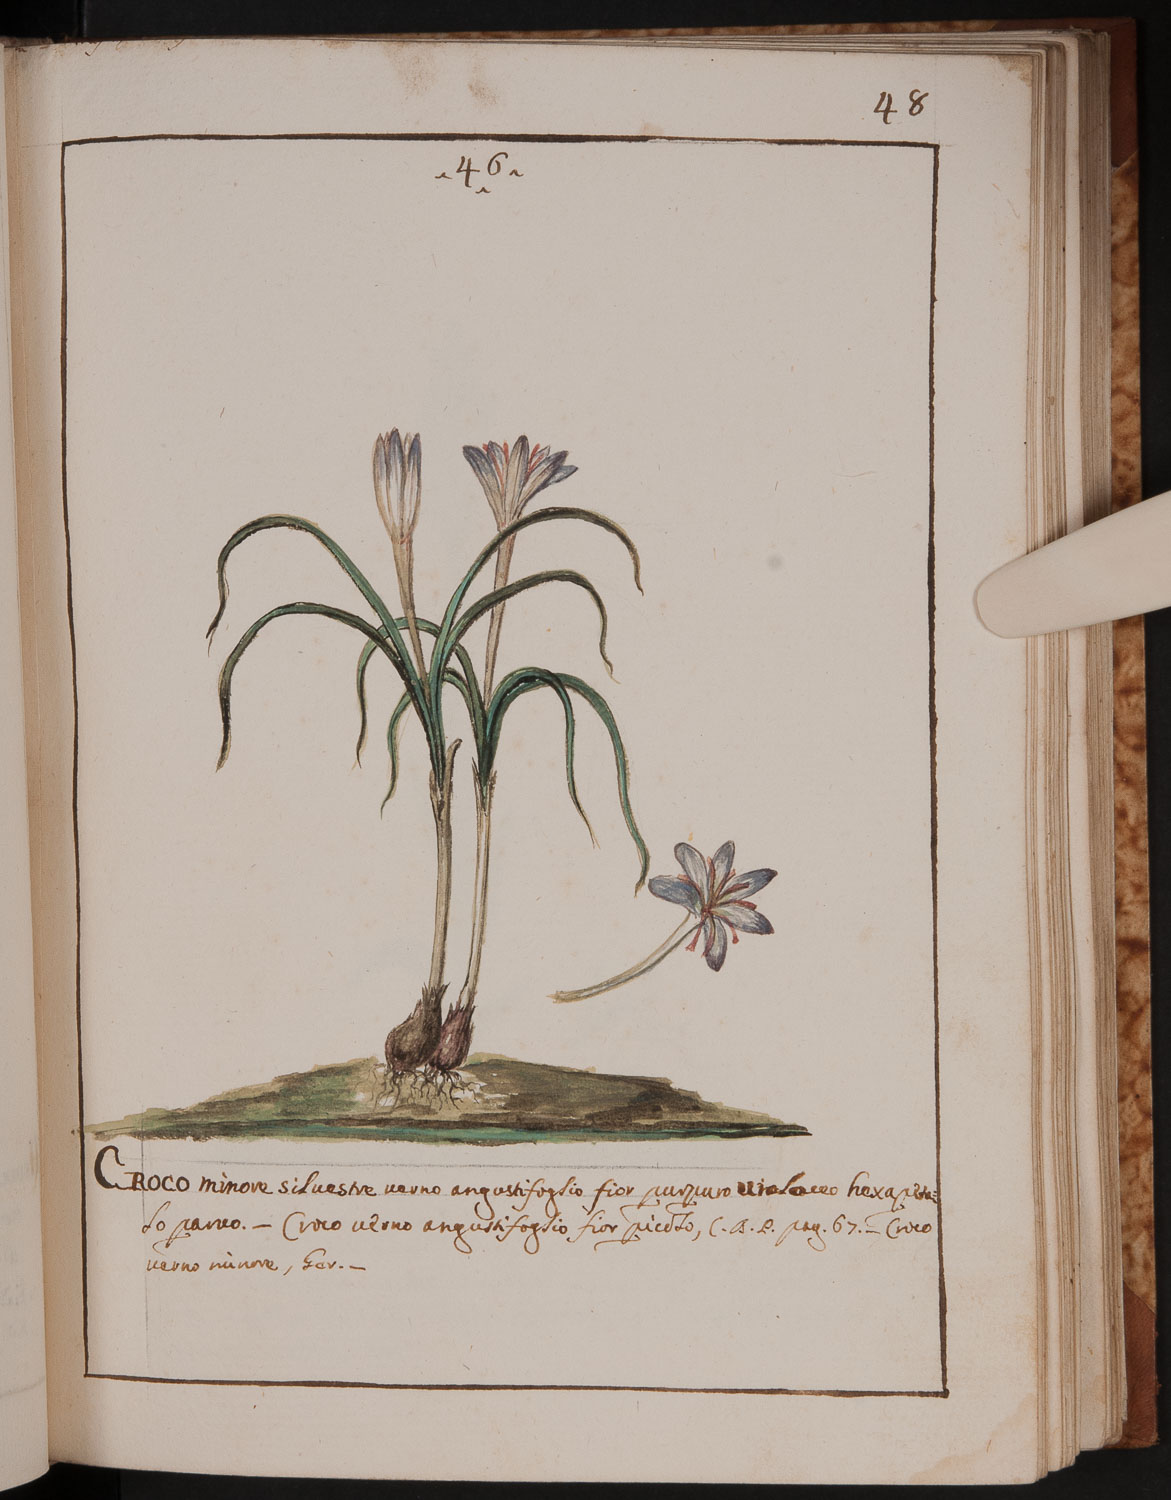 48
46
CROCO minore siluestre uerno angustifoglio fior purpuro uiolaceo hexapeta=
lo paruo. — Croco uerno angustifoglio fior picolo, C. B. P. pag. 67. — Croco
uerno minore, Ger. —